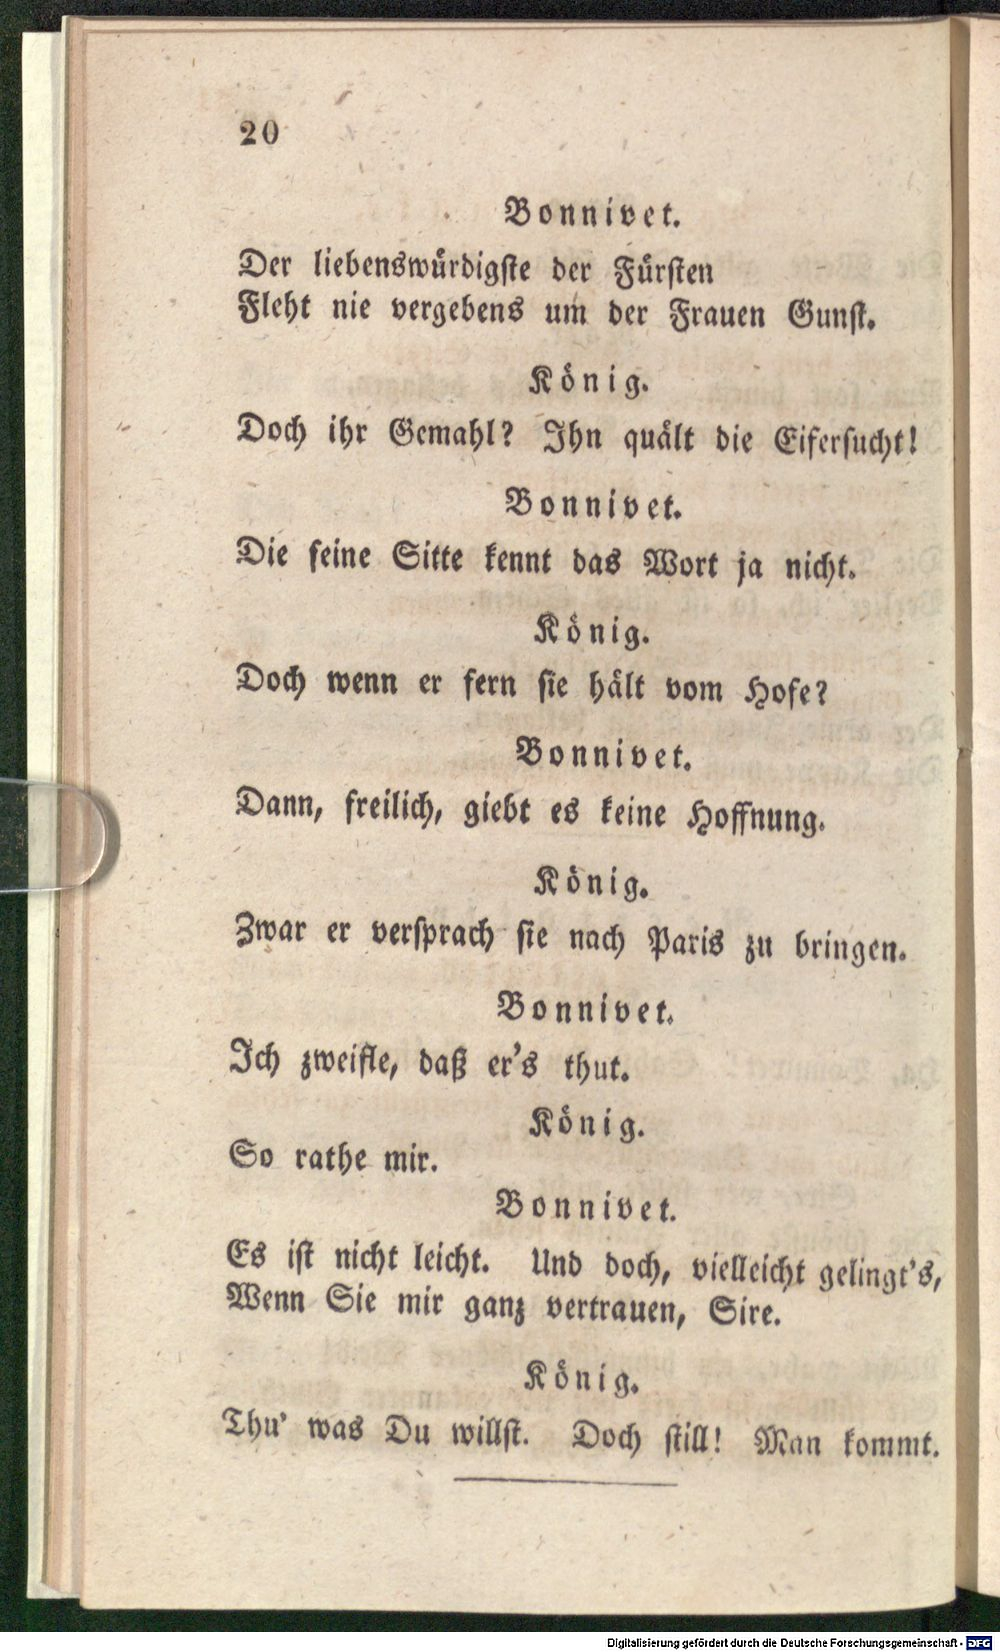 20
Bonnivet.
Der liebenswürdigſte der Fürſten
Fleht nie vergebens um der Frauen Gunſt.
König.
Doch ihr Gemahl? Ihn quält die Eiferſucht!
Bonnivet.
Die feine Sitte kennt das Wort ja nicht.
König.
Doch wenn er fern ſie hält vom Hofe?
Bonnivet.
Dann, freilich, giebt es keine Hoffnung.
König.
Zwar er verſprach ſie nach Paris zu bringen.
Bonnivet.
Ich zweifle, daß er's thut.
König.
So rathe mir.
Bonnivet.
Es iſt nicht leicht. Und doch, vielleicht gelingt's,
Wenn Sie mir ganz vertrauen, Sire.
König.
Thu' was Du willſt. Doch ſtill! Man kommt.
Digitalisierung gefördert durch die Deutsche Forschungsgemeinschaft - DFG